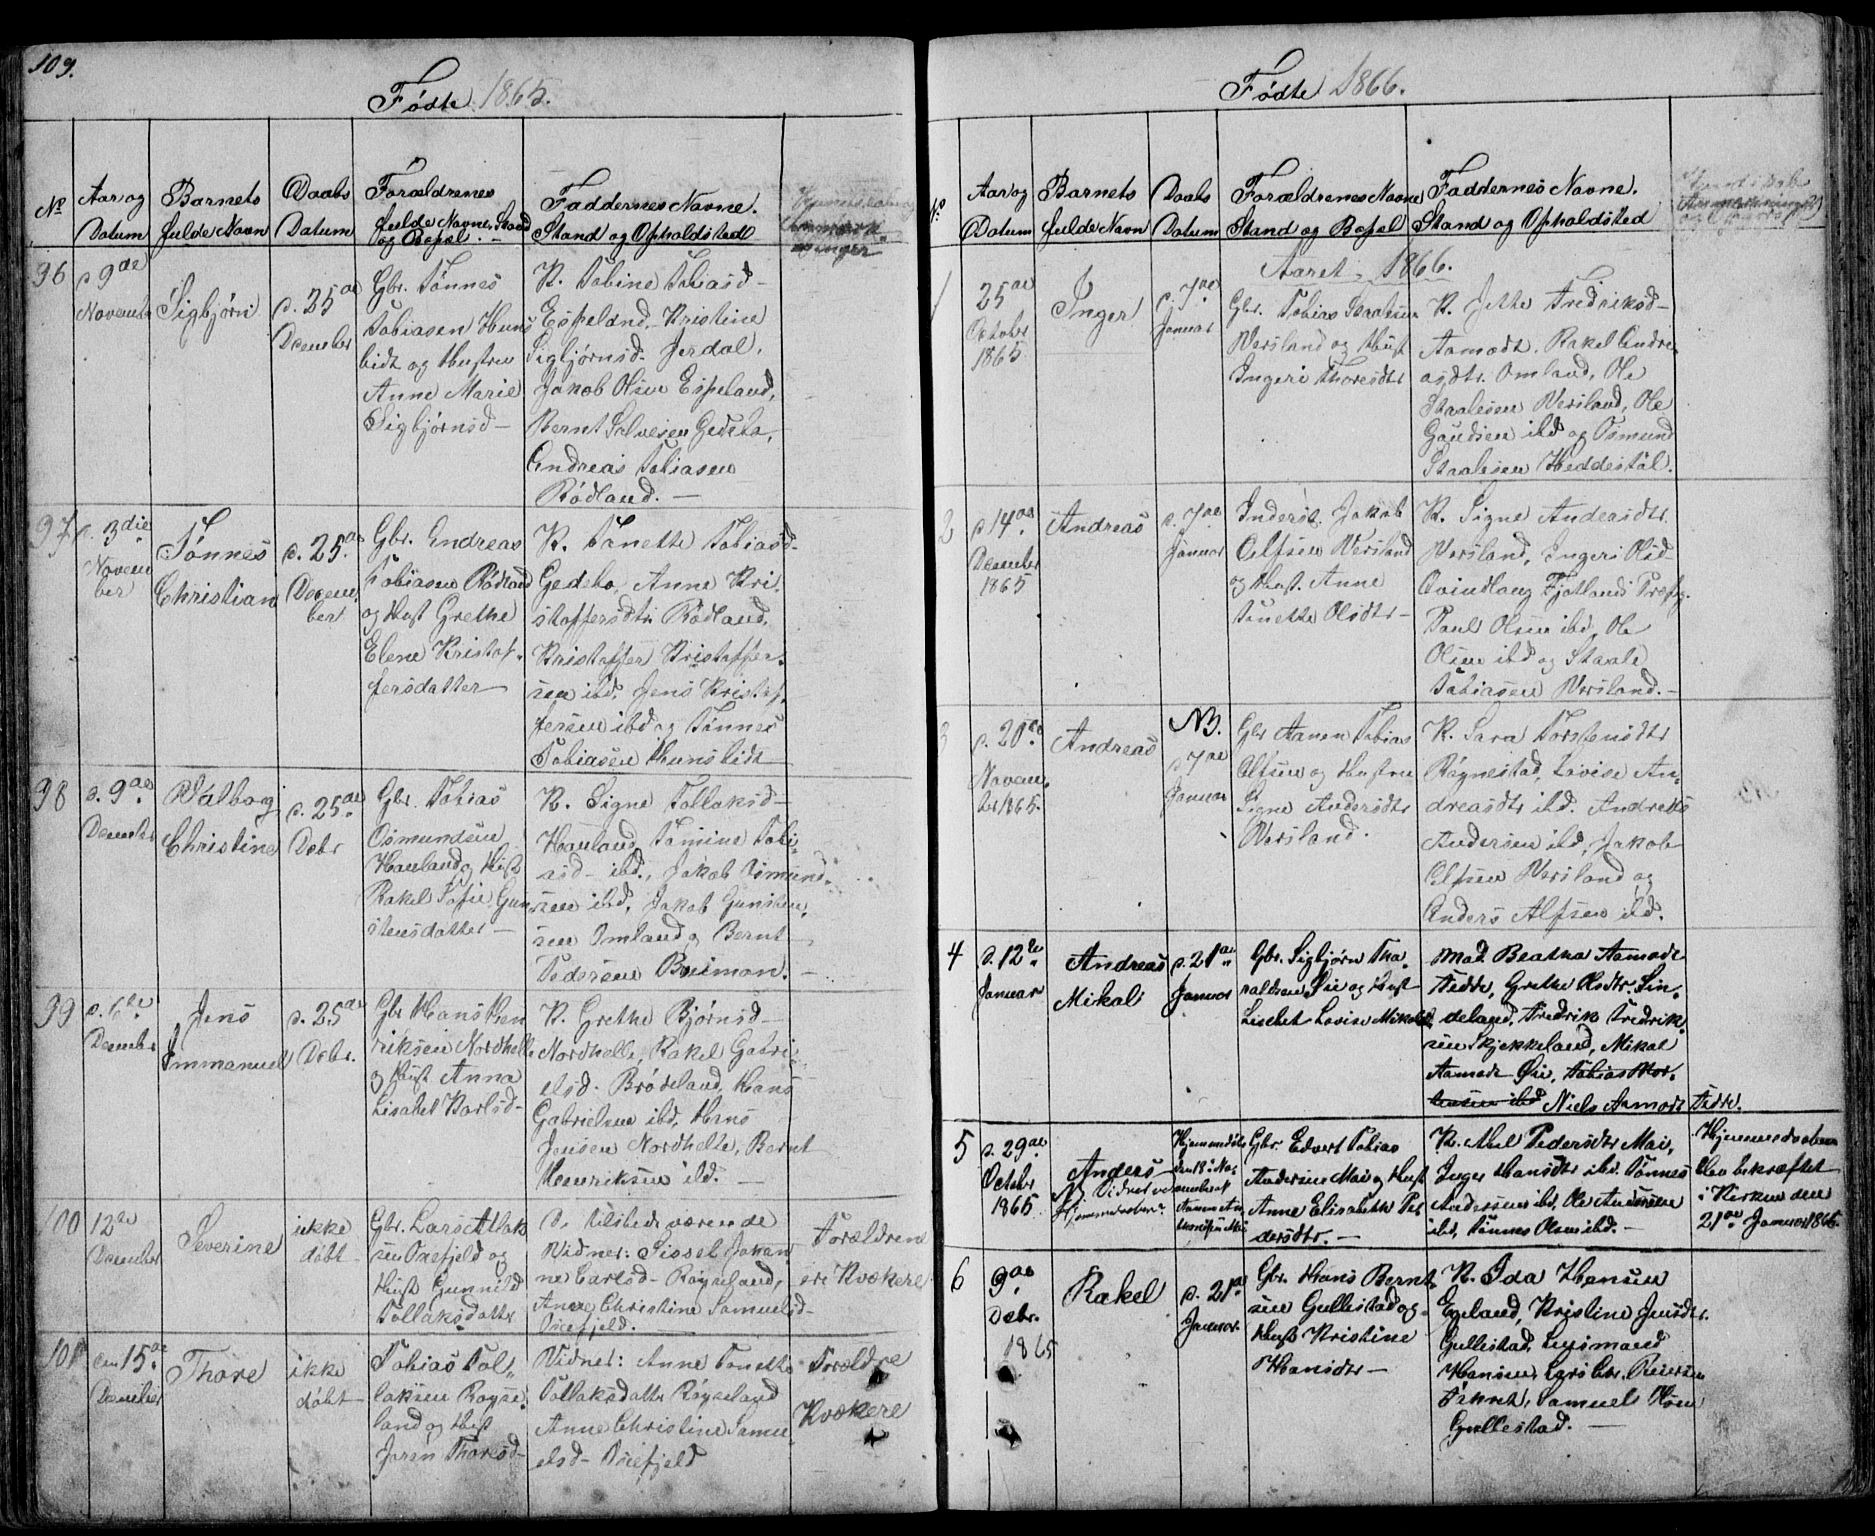 109.
Fødte 1865.
No
Aar og
Datum
Barnets
fulde Navn
Daabs
Datum
Forældrenes
fulde Navne, Stand
og Bopæl.
Faddernes Navne.
Stand og Opholdsted
96
d. 9de
Novembr
Sigbjørn
d. 25de
December
Gbr. Tønnes
Tobiasen Huns
bedt og Hustru
Anne Marie
Sigbjørnsd-
K. Tobine Tobiasd-
Espeland, Kristine
Sigbjørnsd- Jerdal,
Jakob Olsen Espeland,
Bernt Salvesen Gedebo,
Andreas Tobiasen
Rødland. -
97
d. 3die
Novem
ber
Tønnes
Christian
d. 25de
Decem
ber
Gbr. Endreas
Tobiasen Rødland
og Hust Grethe
Elene Kristof-
fersdatter
K. Tanette Tobiasd-
Gedebo, Anne Kri-
stoffersdtr. Rødland,
Kristoffer Kristoffer-
sen ibd, Jens Kristof-
fersen ibd og Tønnes
Tobiasen Hunsbedt
98
d. 9de
Decembr
Valborg
Christine
d. 25de
Debr
Gbr. Tobias
Osmundsen
Hauland og Hust
Rakel Sofie Gun
stensdatter -
K. Signe Tollaksd-
Hauland, Tomine Tobi-
asd- ibd., Jakob Osmund-
sen ibd, Jakob Gunsten-
sen Omland og Bernt
Pedersen Buimon. -
99
d. 6te
Decembr
Jens
Immanuel
d. 25de
Debr.
Gbr Hans Hen
riksen Nordhelle
og Hust Anna
Lisabet Karlsd-
K. Grethe Bjørnsd-
Nordhelle, Rakel Gabri-
elsd- Brødeland, Hans
Gabrielsen ibd, Hans
Jensen Nordhelle, Bernt
Henriksen ibd. -
100
12te
December
Severine
ikke
døbt
Gbr. Lars Atlak
sen Osefjeld og
Hust Gunnild
Tollaksdatter
D. tilstedeværende
Vidner: Sissel Johan
ne Carlsd- Røyseland,
Anne Christine Samuelsd-
Osefjeld.
Forældrene
ere Kvækere
101
den 15de
December
Thore
ikke
døbt
Tobias Tol-
laksen Røyse-
land og Hust
Joren Thoresd-
Vidner: Anne Tonette
Tollaksdatter Røyseland
Anne Christine Samu-
elsd- Osefjeld
Forældre
Kvækere
Fødte 1866.
No
Aar og
Datum
Barnets
fulde Navn
Daabs
Datum
Forældrenes Navne
Stand og Bopæl
Faddernes Navne.
Stand og Opholdsted
Aaret 1866.
1
25de
October
1865
Inger
d. 7de
Januar
Gbr. Tobias Staalesen
Versland og Hust
Ingeri Thoresdtr
K. Jette Fredriksd-
Aamodt, Rakel Andre-
asdtr. Omland, Ole
Staalesen Versland, Ole
Gaudsen ibd og Osmund
Staalesen Heddestøl.
2
d. 14de
December
1865
Andreas
d. 7de
Januar
Inderst. Jakob
Olfsen Versland
og Hust. Anne
Tanette Olsdtr-
K. Signe Andersdtr
Versland, Ingeri Olsd
Qvindlaug Fjotlands Præstg.
Paul Olsen ibd, Ole
Olsen ibd og Staale
Tobiasen Versland. -
3
d. 20de
Novem-
ber 1865.
Andreas
NB.
d. 7de
Januar
Gbr Aanen Tobias
Olfsen og Hustru
Signe Andersdtr
Versland.
K. Sara Torstensdtr
Røynestad, Lovise An-
dreasdtr ibd. Andreas
Andersen ibd, Jakob
Olfsen Versland og
Anders Alfsen ibd.
4
d. 12te
Januar
Andreas
Mikal
d. 21de
Januar
Gbr. Sigbjørn Tha-
raldsen Øie og Hust
Lisebet Lovise Mikalsd
Mad. Beatha Aamodt
Fedde, Grethe Olsdtr. Lin-
deland, Fredrik Fredrik-
sen Skjekkeland, Mikal
Aamodt Øie, Tobias Mor-
tensen ibd Niels Aamodt Fedde.
5
d. 29de
October
1865
Anders
Hjemmedøbt
den 18de No-
vember af
Gbr. Edvert Tobias
Andersen Moi og Hust
Anne Elisabeth Pe
dersdtr. -
K. Abel Pedersdtr Moi,
Inger Hansdtr ibd. Tønnes
Andersen ibd, Ole Andersen
ibd, Tønnes Olsen ibd. -
Hjemmedaaben
blev bekræftet
i Kirken den
21de Januar 1866
6
9de
Debr.
1865
Rakel
d. 21de
Januar.
Gbr. Hans Bernt-
sen Gullestad og
Hust Kristine
Hansdtr -
K. Ida Hansen
Egeland, Kristine Jensdtr.
Gullestad, Lugmand
Hansen, Lars Chr. Reiersen
Samuel Olsen
Gullestad.